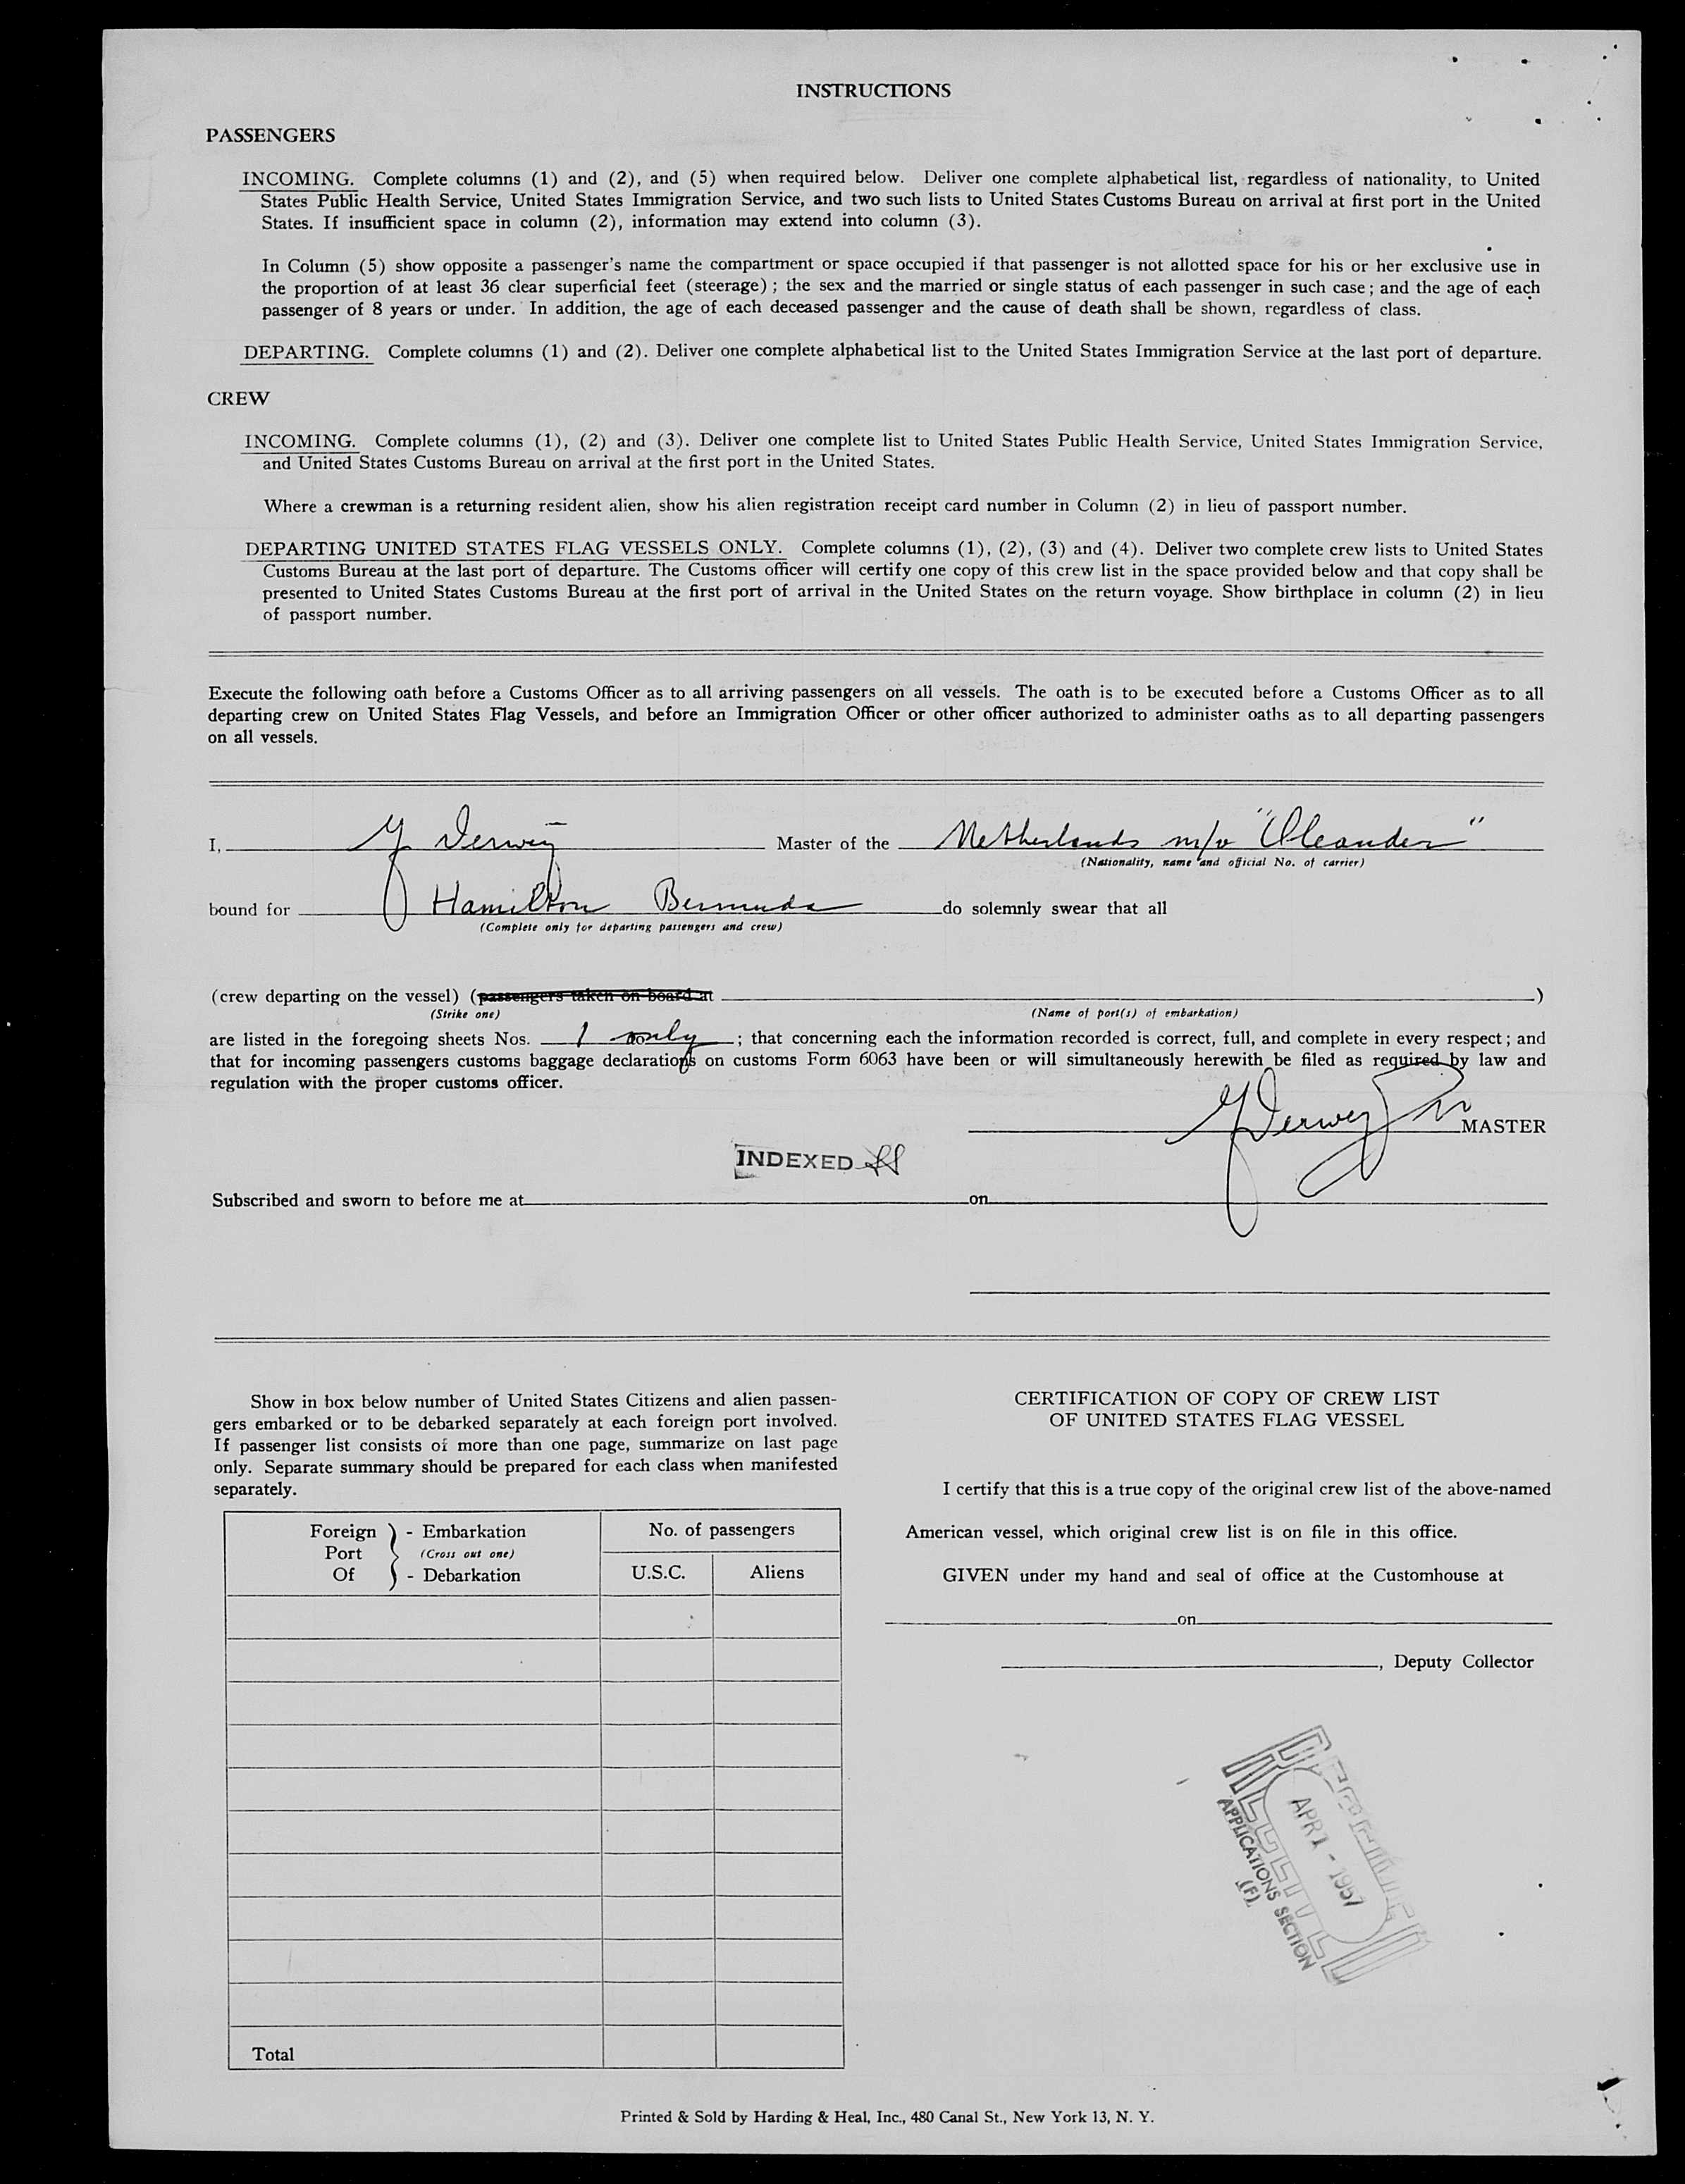 INSTRUCTIONS
PASSENGERS
INCOMING. Complete columns (1) and (2), and (5) when required below. Deliver one complete alphabetical list, regardless of nationality, to United
States Public Health Service, United States Immigration Service, and two such lists to United States Customs Bureau on arrival at first port in the United
States. If insufficient space in column (2), information may extend into column (3).
In Column (5) show opposite a passenger's name the compartment or space occupied if that passenger is not allotted space for his or her exclusive use in
the proportion of at least 36 clear superficial feet (steerage); the sex and the married or single status of each passenger in such case; and the age of each
passenger of 8 years or under. In addition, the age of each deceased passenger and the cause of death shall be shown, regardless of class.
DEPARTING. Complete columns (1) and (2). Deliver one complete alphabetical list to the United States Immigration Service at the last port of departure.
CREW
INCOMING. Complete columns (1), (2) and (3). Deliver one complete list to United States Public Health Service, United States Immigration Service,
and United States Customs Bureau on arrival at the first port in the United States.
Where a crewman is a returning resident alien, show his alien registration receipt card number in Column (2) in lieu of passport number.
DEPARTING UNITED STATES FLAG VESSELS ONLY. Complete columns (1), (2), (3) and (4). Deliver two complete crew lists to United States
Customs Bureau at the last port of departure. The Customs officer will certify one copy of this crew list in the space provided below and that copy shall be
presented to United States Customs Bureau at the first port of arrival in the United States on the return voyage. Show birthplace in column (2) in lieu
of passport number.
Execute the following oath before a Customs Officer as to all arriving passengers on all vessels. The oath is to be executed before a Customs Officer as to all
departing crew on United States Flag Vessels, and before an Immigration Officer or other officer authorized to administer oaths as to all departing passengers
on all vessels.
I, Master of the Netherlands m/v "Oleander"
(Nationality, name and official No. of carrier)
bound for Hamilton Bermuda do solemnly swear that all
(Complete only for departing passengers and crew)
(crew departing on the vessel) (passengers taken on board at )
(Strike one) (Name of port(s) of embarkation)
are listed in the foregoing sheets Nos. 1 only ; that concerning each the information recorded is correct, full, and complete in every respect; and
that for incoming passengers customs baggage declarations on customs Form 6063 have been or will simultaneously herewith be filed as required by law and
regulation with the proper customs officer.
MASTER
INDEXED
Subscribed and sworn to before me at on
Show in box below number of United States Citizens and alien passen-
gers embarked or to be debarked separately at each foreign port involved.
If passenger list consists of more than one page, summarize on last page
only. Separate summary should be prepared for each class when manifested
separately.
Foreign Port Of - Embarkation
(Cross out one)
- Debarkation
No. of passengers
U.S.C. Aliens
Total
CERTIFICATION OF COPY OF CREW LIST
OF UNITED STATES FLAG VESSEL
I certify that this is a true copy of the original crew list of the above-named
American vessel, which original crew list is on file in this office.
GIVEN under my hand and seal of office at the Customhouse at
on
, Deputy Collector
APR 1 - 1957
APPLICATIONS SECTION
(F)
Printed & Sold by Harding & Heal, Inc., 480 Canal St., New York 13, N. Y.